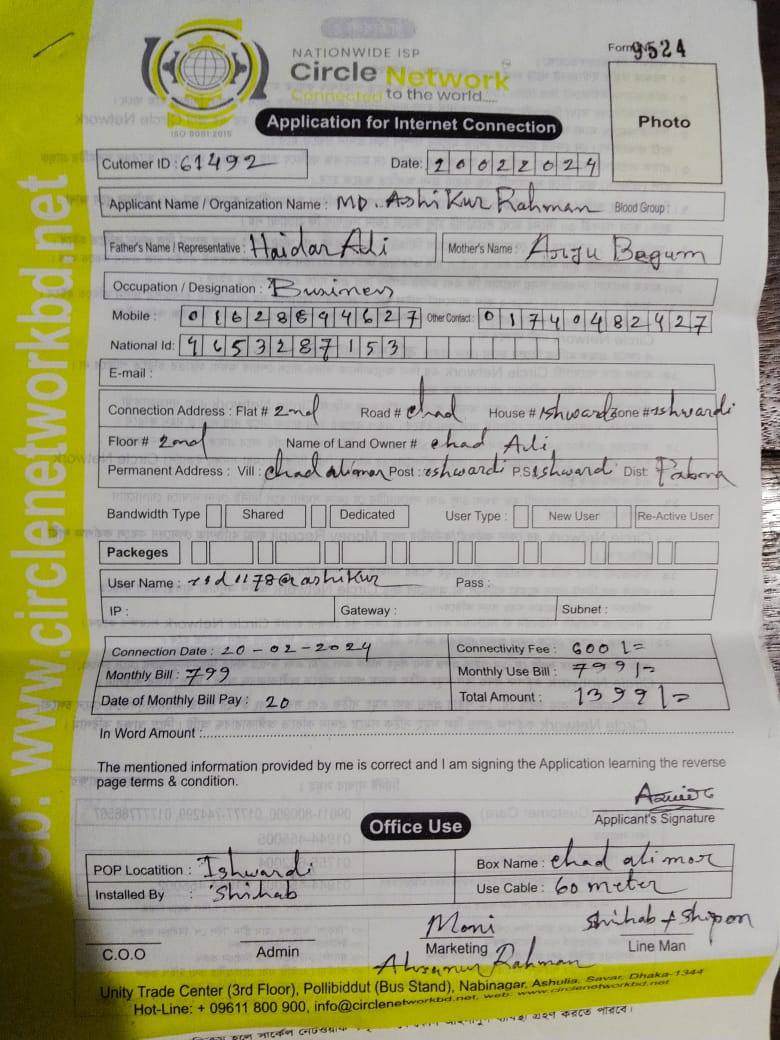 NATIONWIDE ISP
Circle Network
Connected to the world.....
ISO 9001:2015
Form No 9524
Photo
Application for Internet Connection
Cutomer ID : 61492 Date: 20022024
Applicant Name / Organization Name : MD. Ashikur Rahman Blood Group :
Father's Name / Representative : Haidar Ali Mother's Name : Anju Begum
Occupation / Designation : Business
Mobile : 01628894627 Other Contact : 01740482427
National Id: 4653287153
E-mail :
Connection Address : Flat # 2nd Road # chad House # ishwardi Zone # ishwardi
Floor # 2nd Name of Land Owner # chad Ali
Permanent Address : Vill : chad alimor Post : ishwardi P.S ishwardi Dist: Pabna
Bandwidth Type Shared Dedicated User Type : New User Re-Active User
Packeges
User Name : rsd1178@ashikur Pass :
IP : Gateway : Subnet :
Connection Date : 20-02-2024 Connectivity Fee : 600/=
Monthly Bill : 799 Monthly Use Bill : 799/=
Date of Monthly Bill Pay : 20 Total Amount : 1399/=
In Word Amount :
The mentioned information provided by me is correct and I am signing the Application learning the reverse
page terms & condition.
Applicant's Signature
Office Use
POP Locatition : Ishwardi Box Name : chad ali mor
Installed By : Shihab Use Cable : 60 meter
Moni Shihab + Shipon
C.O.O Admin Marketing Line Man
Ahsanur Rahman
Unity Trade Center (3rd Floor), Pollibiddut (Bus Stand), Nabinagar, Ashulia, Savar, Dhaka-1344
Hot-Line: + 09611 800 900, info@circlenetworkbd.net, web: www.circlenetworkbd.net
web: www.circlenetworkbd.net